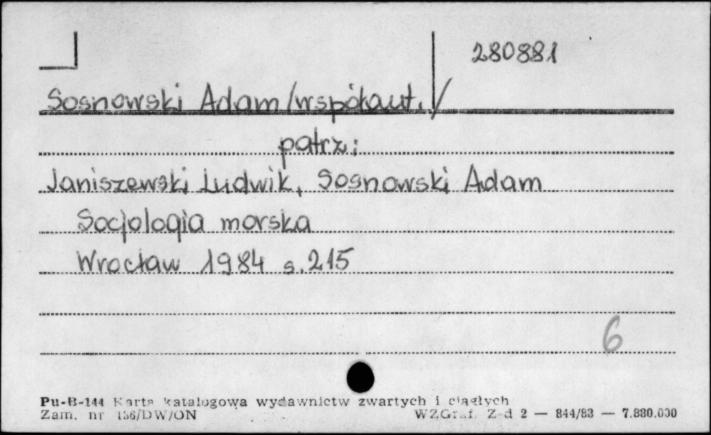 280881
Sosnowski Adam /współaut./
patrz:
Janiszewski Ludwik, Sosnowski Adam
Socjologia morska
Wrocław 1984 s.215
6
Pu-B-144 Karta katalogowa wydawnictw zwartych i ciągłych
Zam. nr 156/DW/ON WZGraf. Z-d 2 — 844/83 — 7.880.000